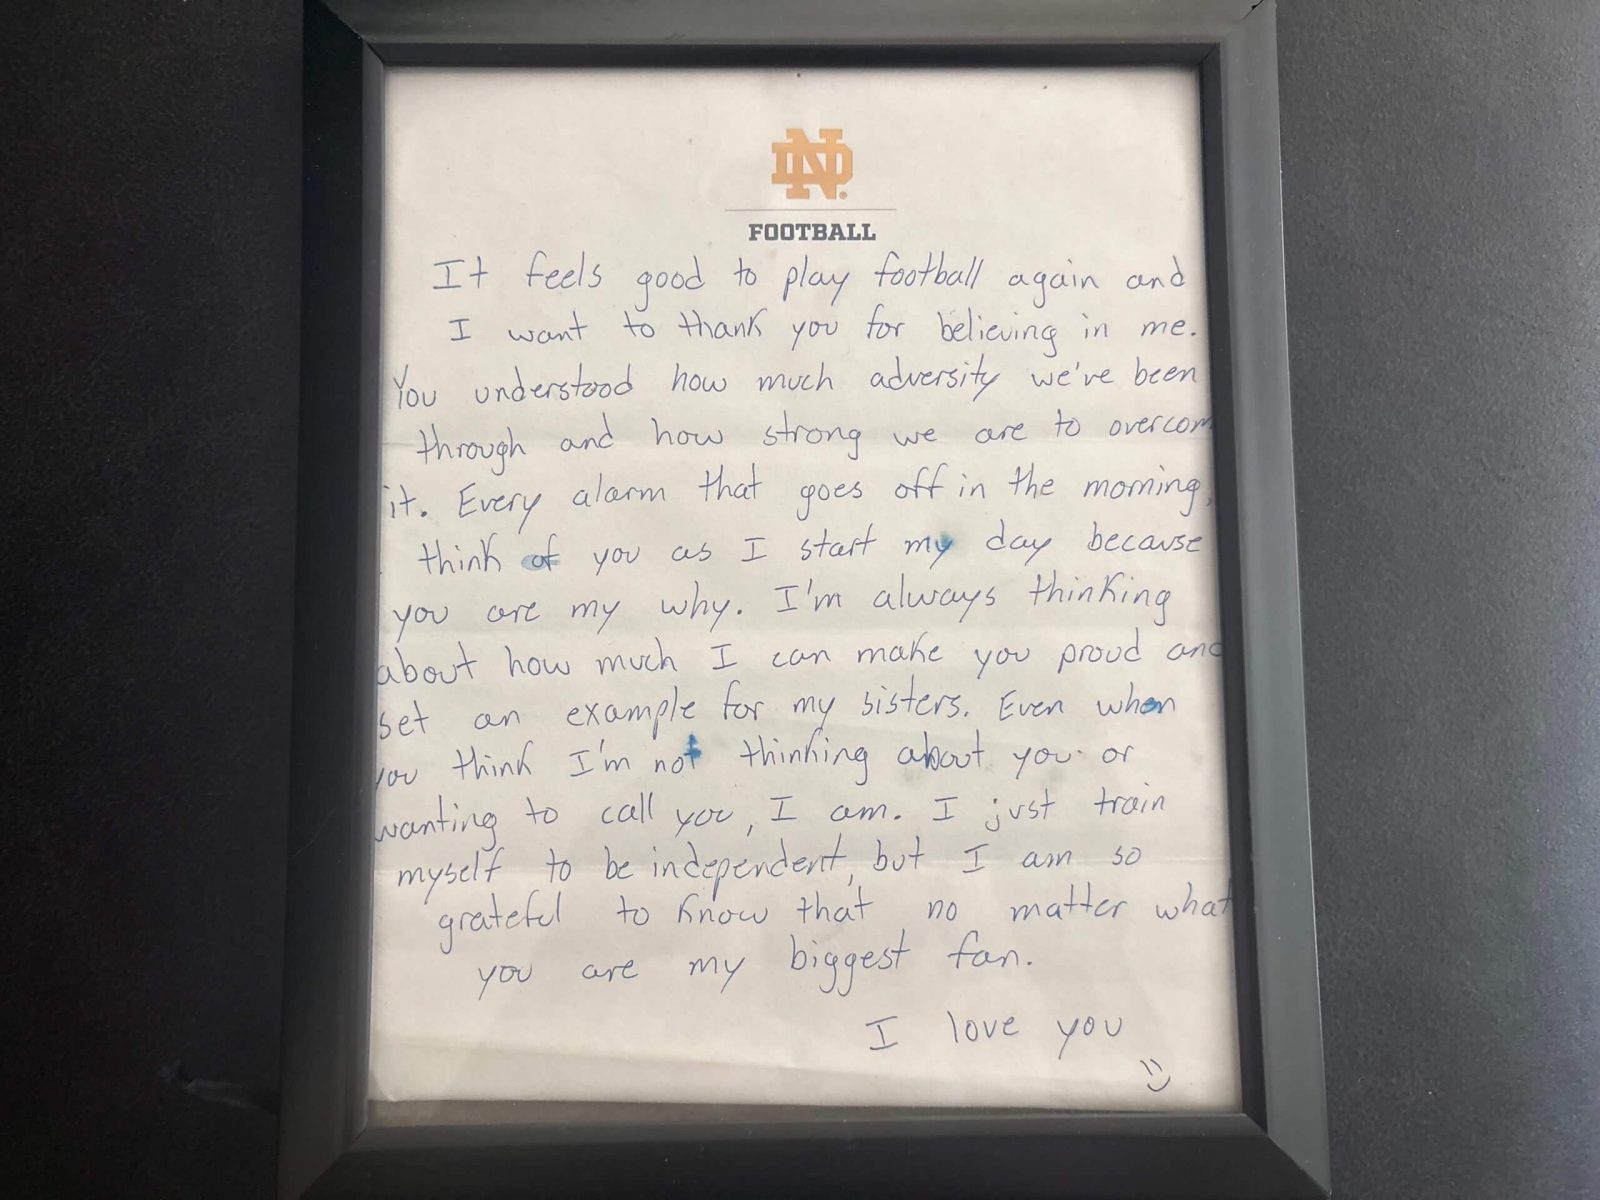 ND
FOOTBALL
It feels good to play football again and
I want to thank you for believing in me.
You understood how much adversity we've been
through and how strong we are to overcom
it. Every alarm that goes off in the morning,
think of you as I start my day because
you are my why. I'm always thinking
about how much I can make you proud and
set an example for my sisters. Even when
you think I'm not thinking about you or
wanting to call you, I am. I just train
myself to be independent, but I am so
grateful to know that no matter what
you are my biggest fan.
I love you